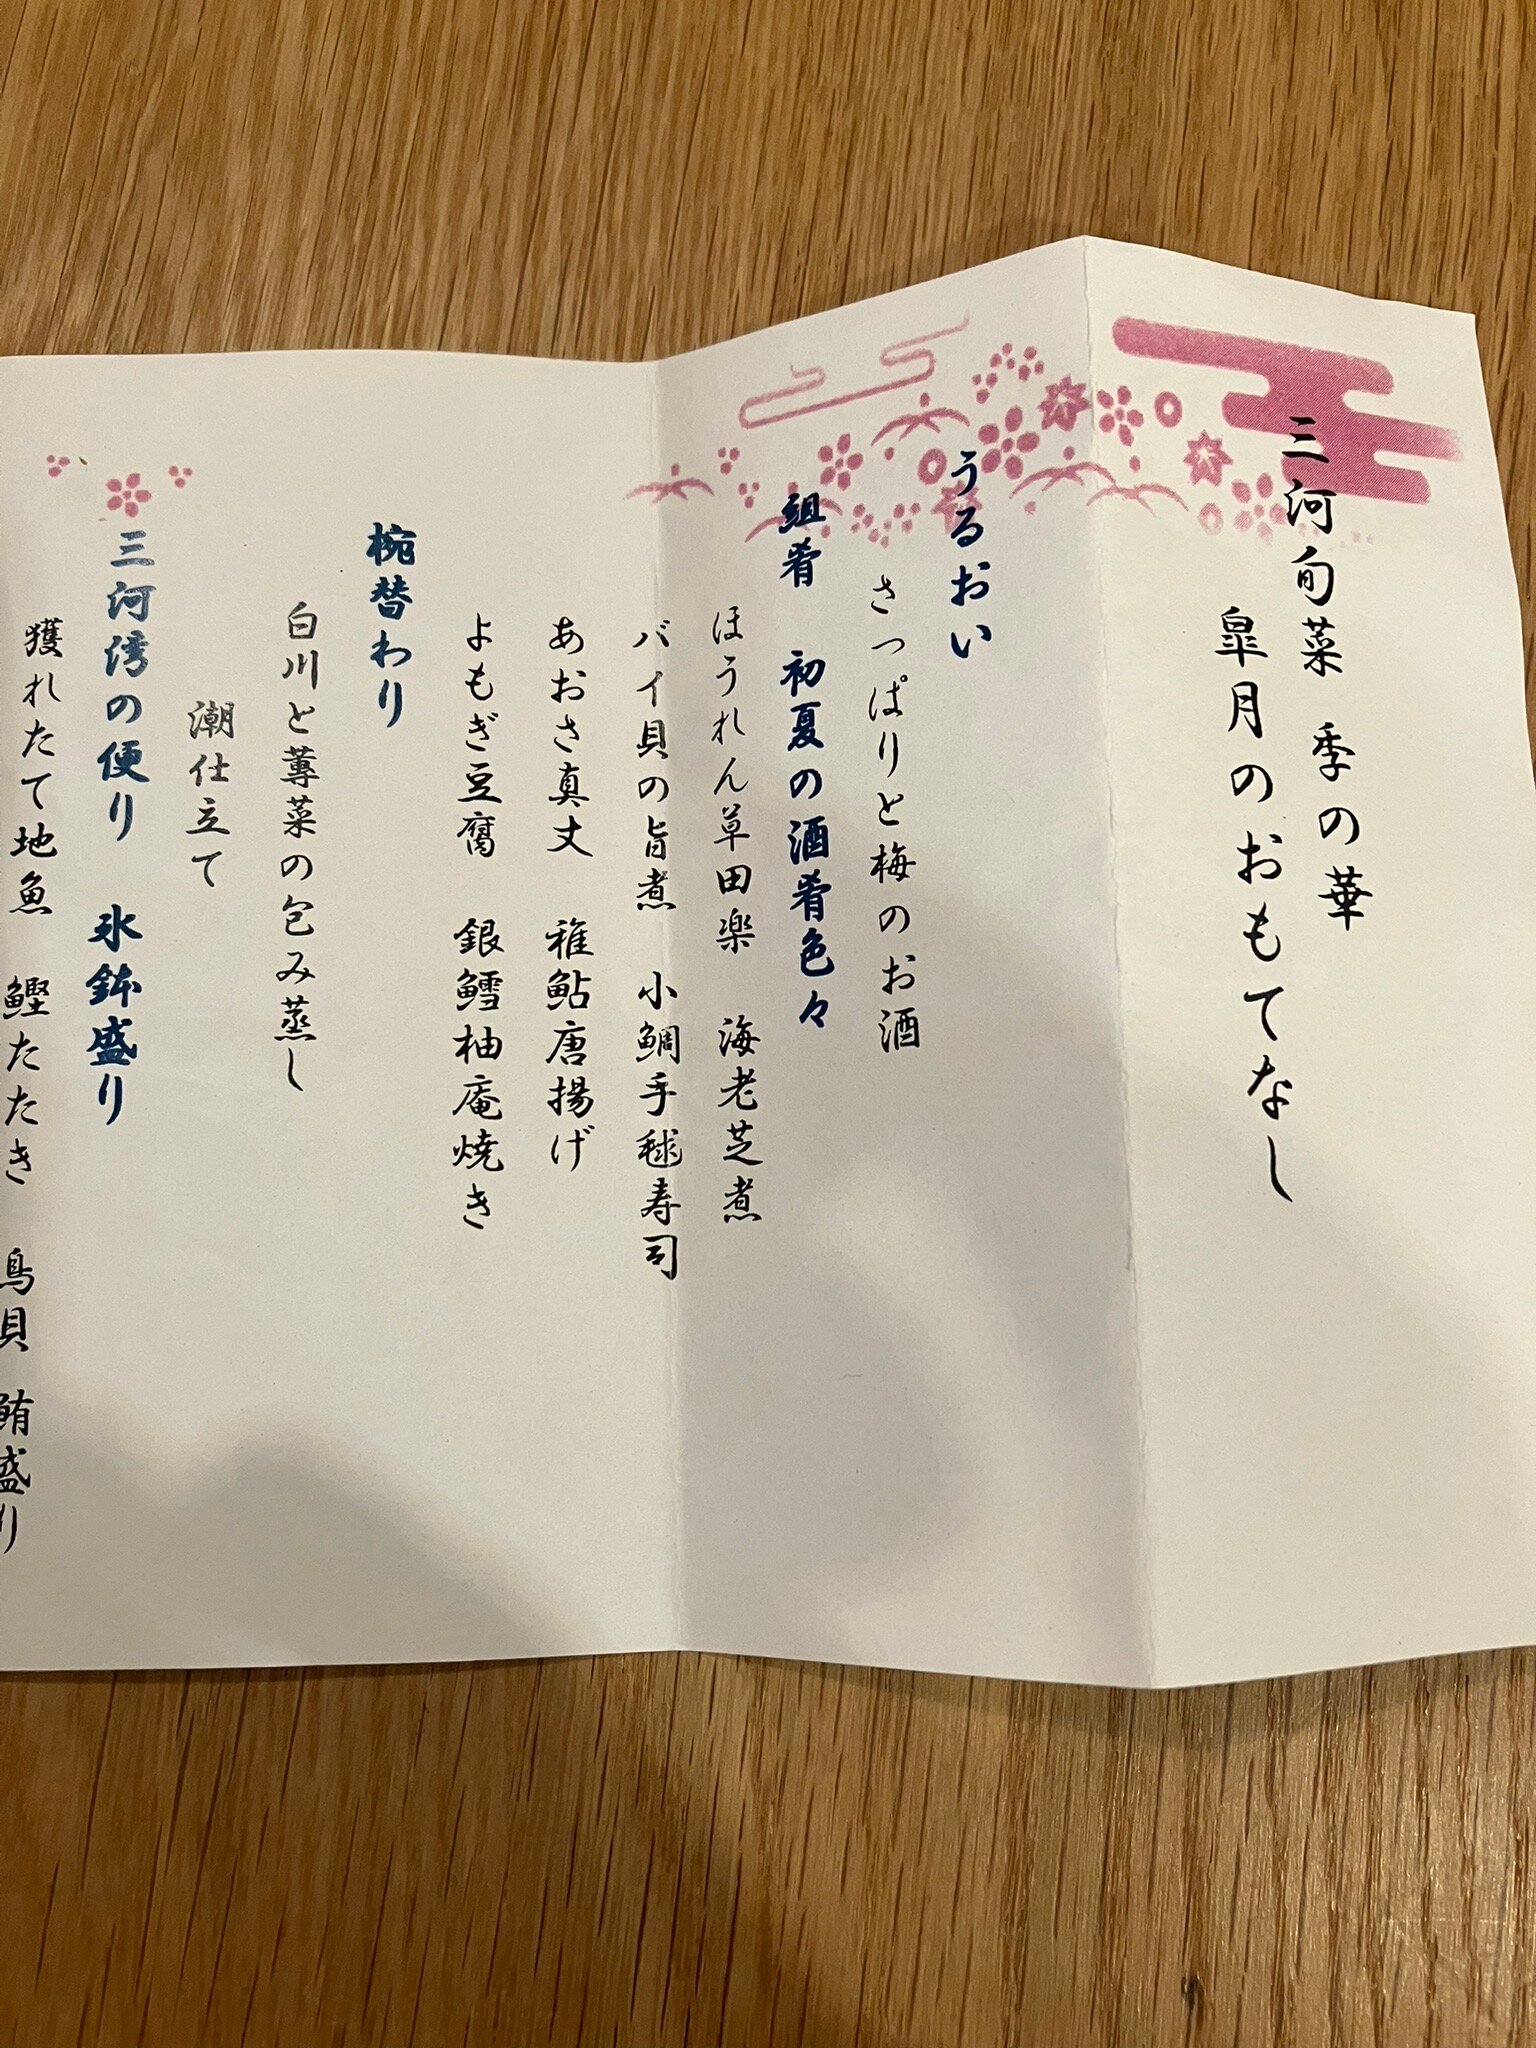 三河旬菜 季の華
皐月のおもてなし
うるおい
さっぱりと梅のお酒
組肴 初夏の酒肴色々
ほうれん草田楽 海老芝煮
バイ貝の旨煮 小鯛手毬寿司
あおさ真丈 稚鮎唐揚げ
よもぎ豆腐 銀鱈柚庵焼き
椀替わり
白川と蓴菜の包み蒸し
潮仕立て
三河湾の便り 氷鉢盛り
獲れたて地魚 鰹たたき 鳥貝 鮪盛り